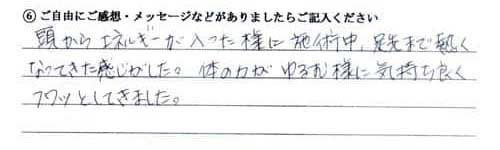 ⑥ ご自由にご感想・メッセージなどがありましたらご記入ください
頭からエネルギーが入った様に施術中、足先まで熱く
なってきた感じがした。体の力がゆるむ様に気持ち良く
フワッとしてきました。